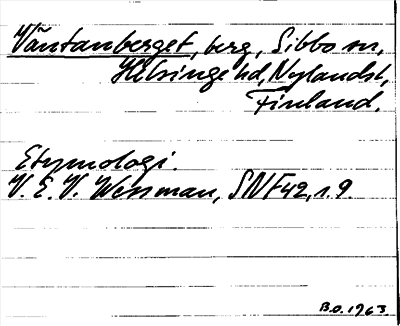 Väntanberget, berg, Sibbo sn,
Helsinge hd, Nylands l,
Finland.
Etymologi.
V. E. V. Wessman, SNF 42, s. 9.
B.O. 1963